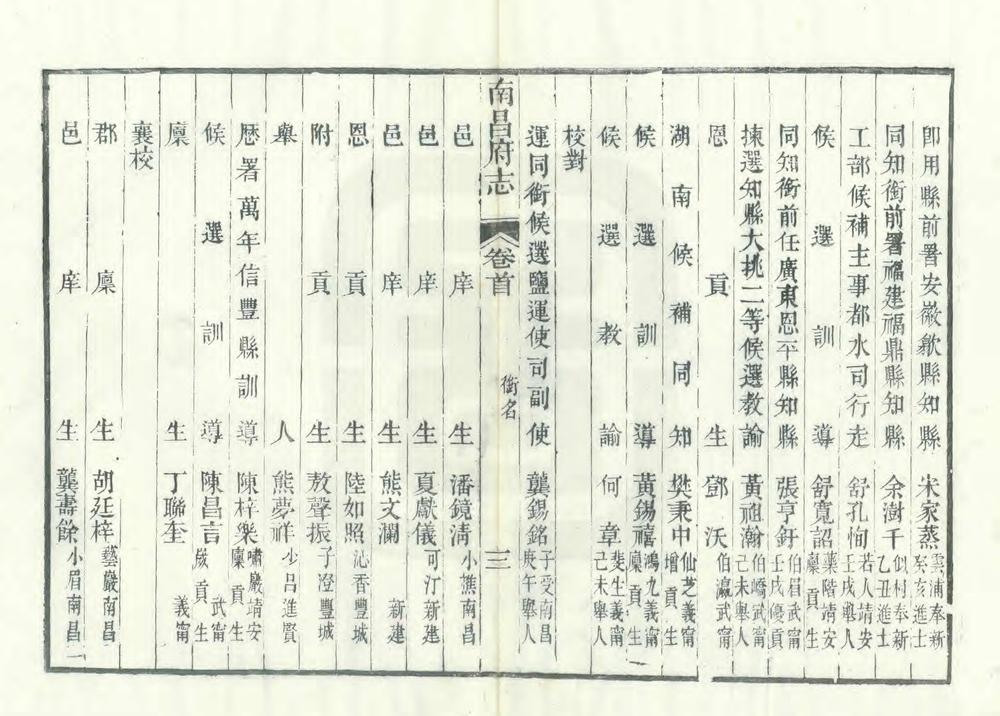 卽用縣前署安徽歙縣知縣宋家蒸雲浦奉新癸亥進士
同知銜前署福建福鼎縣知縣余澍千似村奉新乙丑進士
工部候補主事都水司行走舒孔恂若人靖安壬戌舉人
候選訓導舒寬詔葉階靖安廩貢生
同知銜前任廣東恩平縣知縣張亨釪伯昌武甯壬戌優貢
揀選知縣大挑二等候選教諭黃祖瀚伯嶠武甯己未舉人
恩貢生鄧沃伯瀛武甯
湖南候補同知樊秉中仙芝義甯增貢生
候選訓導黃錫禧鴻九義甯廩貢生
候選教諭何章斐生義甯己未舉人
校對
運同銜候選鹽運使司副使龔錫銘子受南昌庚午舉人
南昌府志 卷首 銜名 三
邑庠生潘鏡清小樵南昌
邑庠生夏獻儀可汀新建
邑庠生熊文瀾新建
恩貢生陸如照沁香豐城
附貢生敖聲振子澄豐城
舉人熊夢祥少呂進賢
歷署萬年信豐縣訓導陳梓樂嘯巖靖安廩貢生
候選訓導陳昌言武甯歲貢生
廩生丁聯奎義甯
襄校
郡廩生胡廷梓藝巖南昌
邑庠生龔壽餘小眉南昌